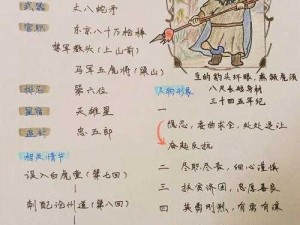 武器 丈八蛇矛
官职 东京八十万枪棒
禁军教头（上山前）
马军五虎将（梁山）
排名 第六位
星宿 天雄星
追封 忠武郎
相关情节
误入白虎堂（第七回）
刺配沧州道（第八回）
生的豹头环眼，燕颔虎须
八尺长短身材
三十四五年纪
人物形象
一 隐忍，委曲求全，处处退让
奋起反抗
二 尽职尽责，细心谨慎
三 扶危济困，忠厚善良
四 英勇刚烈，有勇有谋